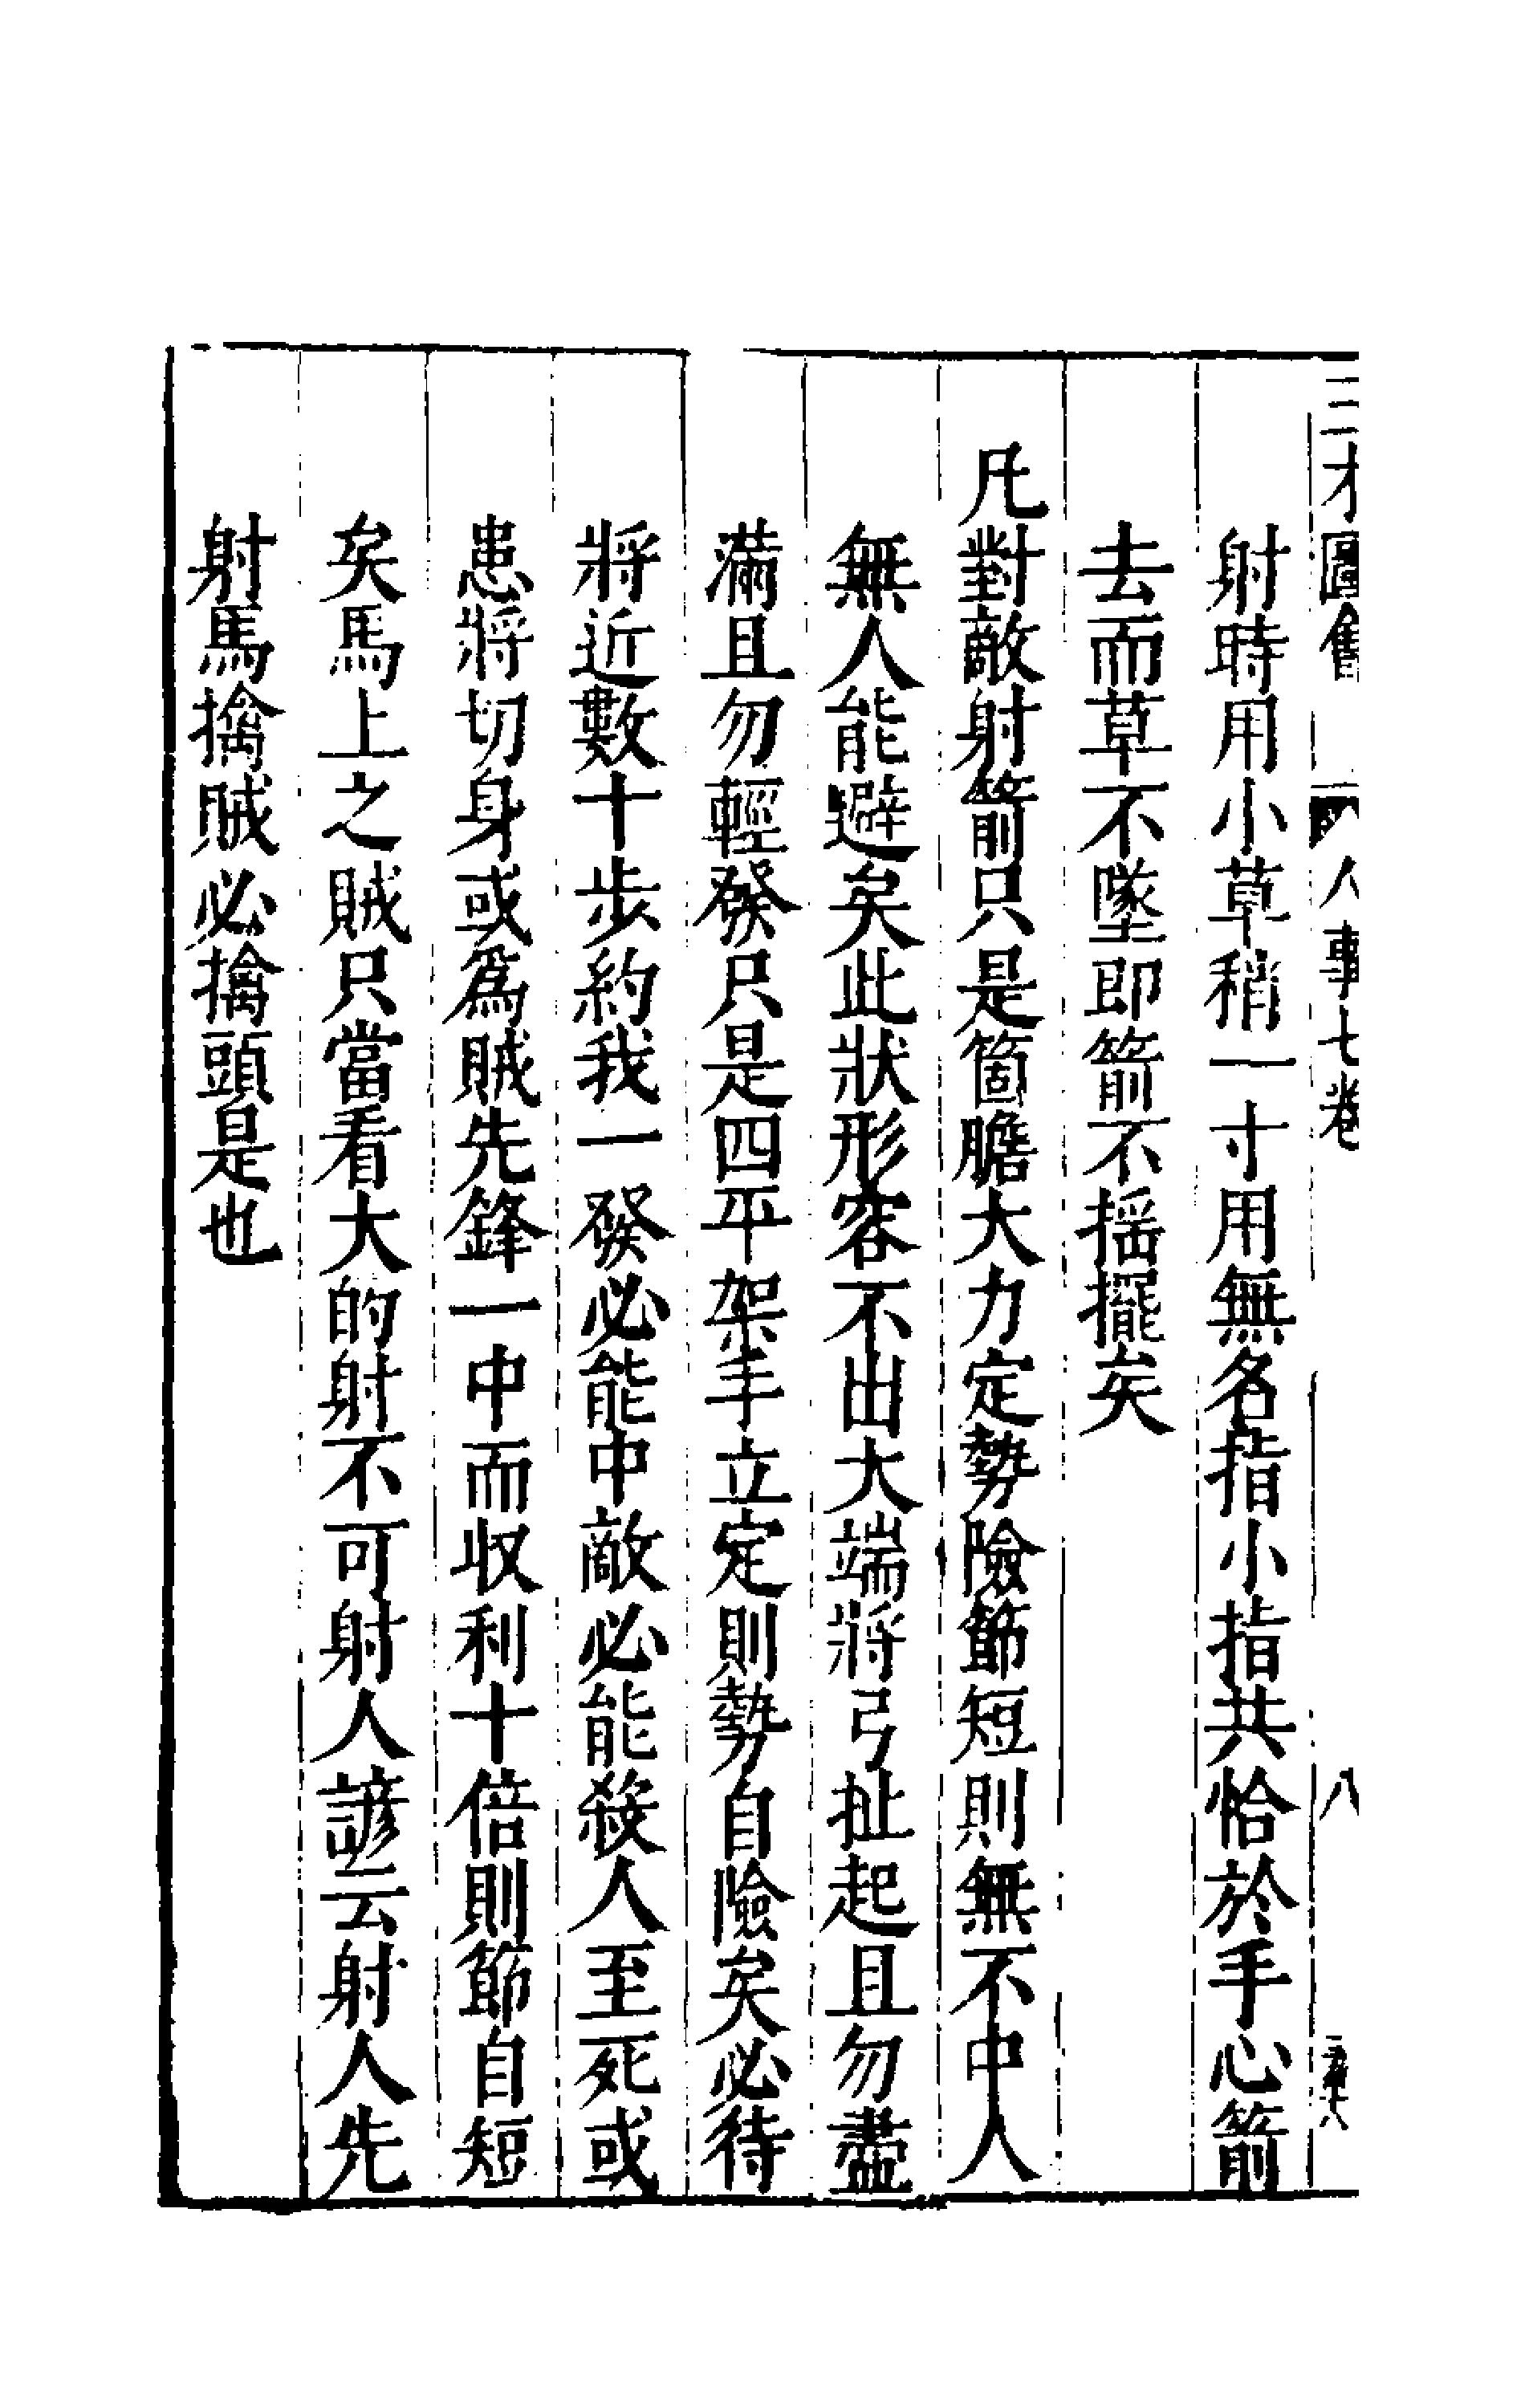 三才圖會 人事七卷 八
射時用小草稍一寸用無名指小指共恰於手心箭
去而草不墜即箭不揺擺矣
凡對敵射箭只是箇膽大力定勢險節短則無不中人
無人能避矣此狀形容不出大端將弓扯起且勿盡
滿且勿輕發只是四平架手立定則勢自險矣必待
將近數十步約我一發必能中敵必能殺人至死或
患將切身或爲賊先鋒一中而收利十倍則節自短
矣馬上之賊只當看大的射不可射人諺云射人先
射馬擒賊必擒頭是也